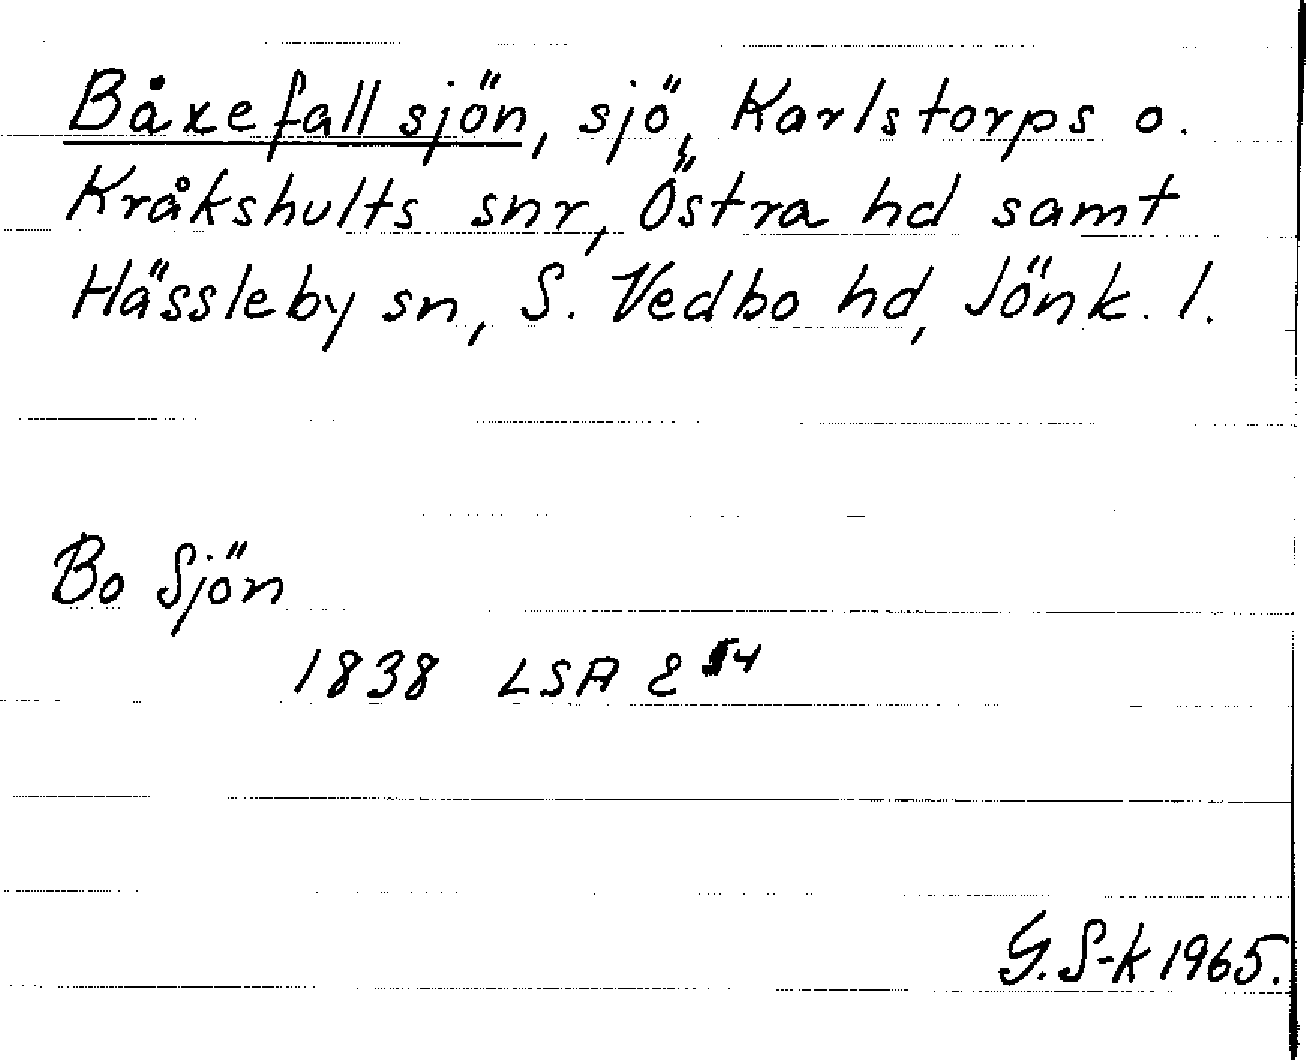 Båxefallsjön, sjö, Karlstorps o.
Kråkshults snr, Östra hd samt
Hässleby sn, S. Vedbo hd, Jönk. l.
Bo Sjön
1838 LSA E 54
G. S-k 1965.